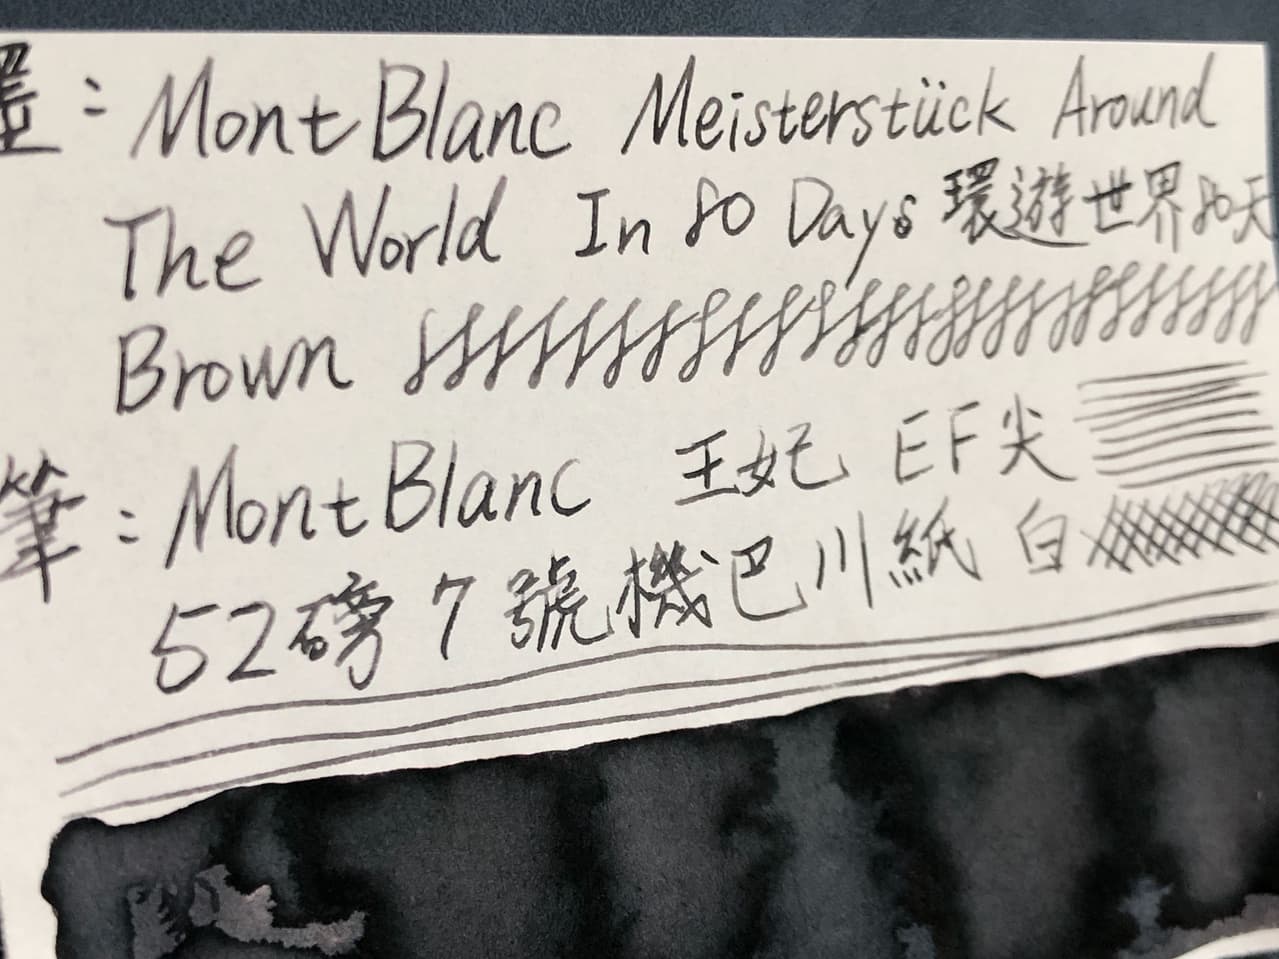 墨：MontBlanc Meisterstück Around
The World In 80 Days 環遊世界80天
Brown
筆：MontBlanc 王妃 EF尖
52磅7號機巴川紙 白